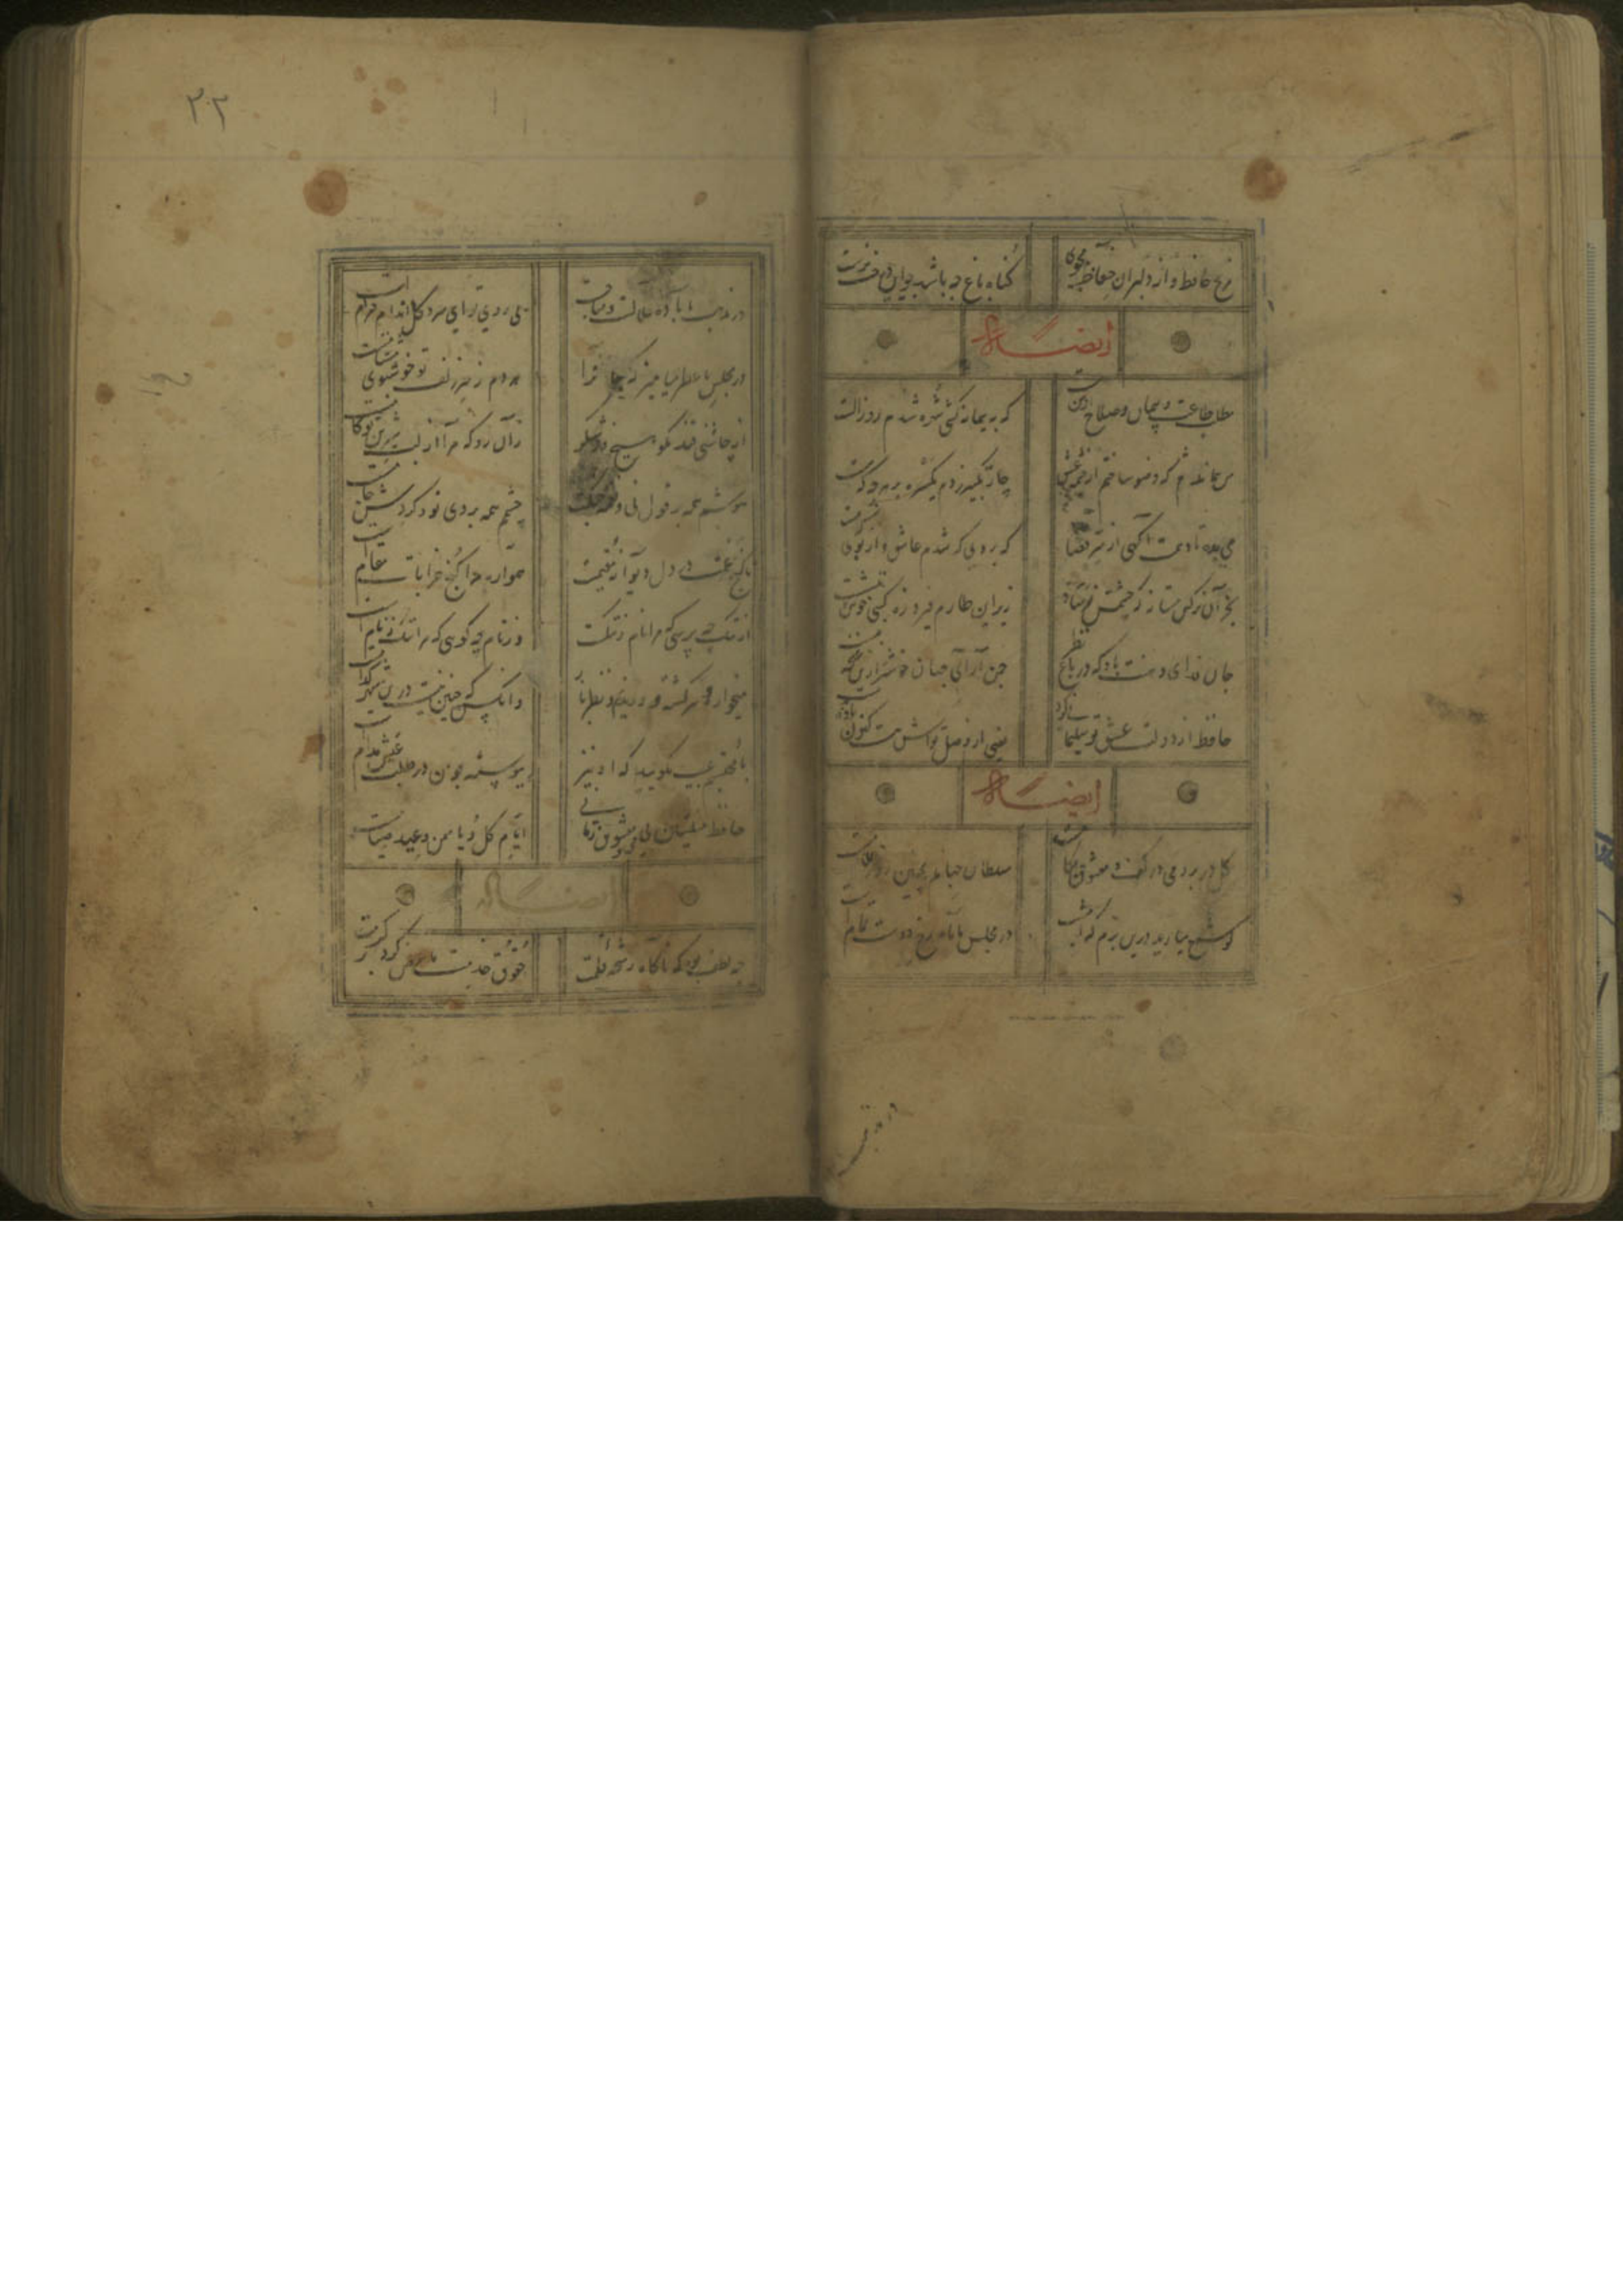 مرنج حافظ و از دلبران حفاظ مجوی
گناه باغ چه باشد چو این درخت نرست
ایضاً له
مطلب طاعت و پیمان و صلاح از من مست
که به پیمانه کشی شهره شدم روز الست
من هماندم که وضو ساختم از چشمه عشق
چار تکبیر زدم یکسره بر هر چه که هست
می بده تا دهمت آگهی از سر قضا
که بروی که شدم عاشق و از بوی که مست
بجز آن نرگس مستانه که چشمش مرساد
زیر این طارم فیروزه کسی خوش ننشست
جان فدای دهنت باد که در باغ نظر
چمن آرای جهان خوشتر ازین غنچه نبست
حافظ از دولت عشق تو سلیمانی کرد
یعنی از وصل تواش نیست کنون باد بدست
ایضاً له
گل در بر و می در کف و معشوق بکامست
سلطان جهانم بچنین روز غلامست
گو شمع میارید درین بزم که امشب
در مجلس ما ماه رخ دوست تمام است
در مذهب
۲۰۲
در مذهب ما باده حلالست و لیکن
بی روی تو ای سرو گل اندام حرام است
در مجلس ما عطر میامیز که جان را
هر دم ز سر زلف تو خوشبوی مشامست
از چاشنی قند مگو هیچ و ز شکر
زان رو که مرا از لب شیرین تو کامست
گوشم همه بر قول نی و نغمه چنگست
چشم همه بر روی تو و گردش جامست
تا گنج غمت در دل ویرانه مقیمست
همواره مرا کنج خرابات مقام است
از ننگ چه پرسی که مرا نام ز ننگست
وز نام چه گویی که مرا ننگ ز نام است
میخواره و سرگشته و رندیم و نظرباز
وانکس که چنین نیست درین شهر کدامست
با محتسبم عیب مگویید که او نیز
پیوسته چو من در طلب عیش مدام است
حافظ منشین بی می و معشوق زمانی
ایام گل و یاسمن و عید صیامست
ایضاً له
چه لطف بود که ناگاه رشحه قلمت
حقوق خدمت ما عرض کرد بر کرمت